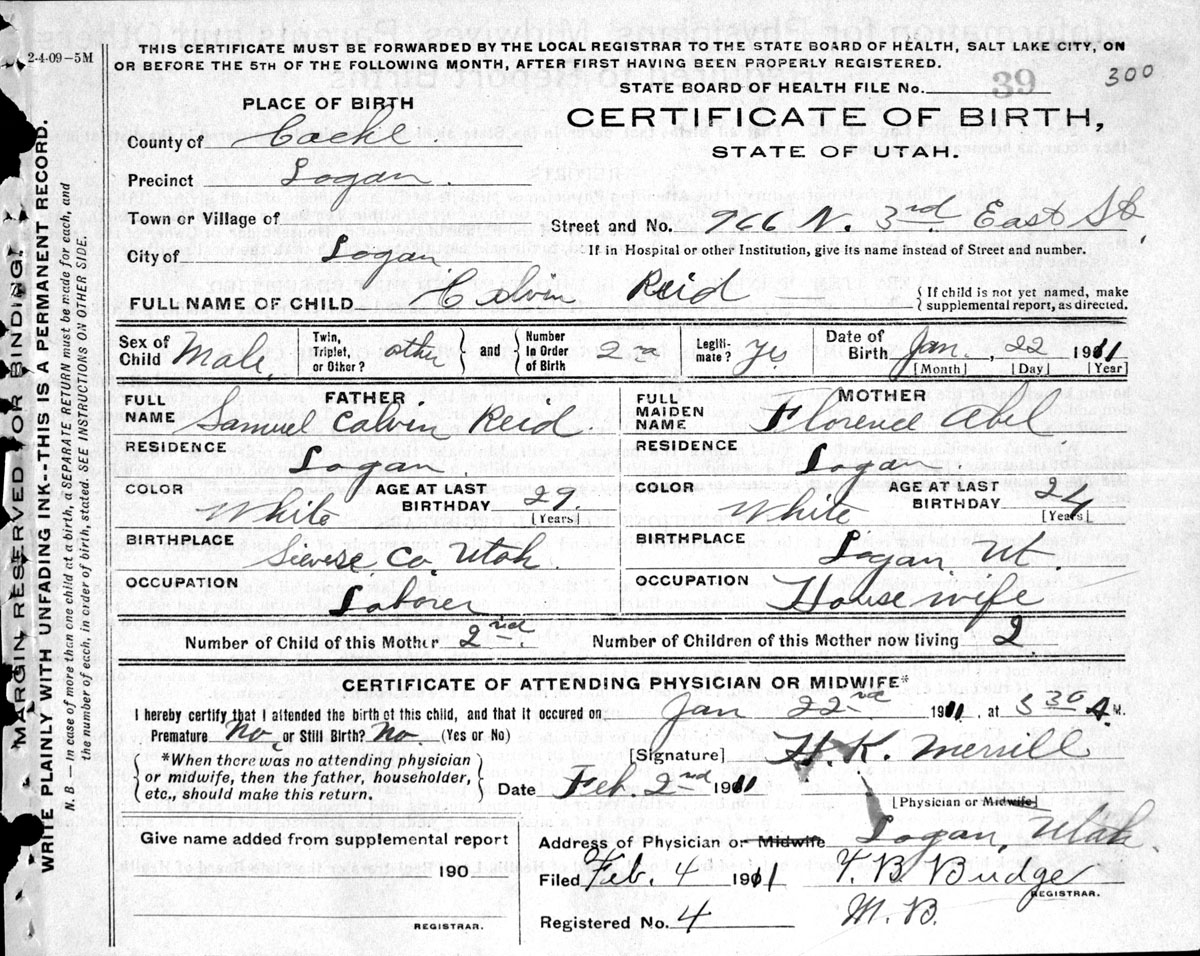 2-4-09-5M
THIS CERTIFICATE MUST BE FORWARDED BY THE LOCAL REGISTRAR TO THE STATE BOARD OF HEALTH, SALT LAKE CITY, ON
OR BEFORE THE 5TH OF THE FOLLOWING MONTH, AFTER FIRST HAVING BEEN PROPERLY REGISTERED.
STATE BOARD OF HEALTH FILE No. 39 300
PLACE OF BIRTH
CERTIFICATE OF BIRTH,
STATE OF UTAH.
County of Cache
Precinct Logan
Town or Village of
Street and No. 966 N. 3rd East St
City of Logan
If in Hospital or other Institution, give its name instead of Street and number.
FULL NAME OF CHILD Calvin Reid
If child is not yet named, make
supplemental report, as directed.
Sex of Child Male. Twin, Triplet, or Other? other and Number In Order of Birth 2nd Legiti-mate? Yes Date of Birth Jan. 22 1911
[Month] [Day] [Year]
FATHER
FULL NAME Samuel Calvin Reid
MOTHER
FULL MAIDEN NAME Florence Abel
RESIDENCE Logan
RESIDENCE Logan
COLOR White AGE AT LAST BIRTHDAY 29 [Years]
COLOR White AGE AT LAST BIRTHDAY 24 [Years]
BIRTHPLACE Co, Utah
BIRTHPLACE Logan Ut.
OCCUPATION Laborer
OCCUPATION Housewife
Number of Child of this Mother 2nd Number of Children of this Mother now living 2
CERTIFICATE OF ATTENDING PHYSICIAN OR MIDWIFE*
I hereby certify that I attended the birth of this child, and that it occured on Jan 22nd 1911, at 3 30 A. M.
Premature No, or Still Birth? No. (Yes or No)
[Signature] H. K. Merrill
*When there was no attending physician
or midwife, then the father, householder,
etc., should make this return.
Date Feb 2nd 1911
[Physician or Midwife]
Give name added from supplemental report
Address of Physician or Midwife Logan, Utah.
190
Filed Feb. 4 1911 T. B. Budge
REGISTRAR.
Registered No. 4 M. B.
REGISTRAR.
MARGIN RESERVED FOR BINDING.
WRITE PLAINLY WITH UNFADING INK--THIS IS A PERMANENT RECORD.
N. B.—In case of more than one child at a birth, a SEPARATE RETURN must be made for each, and
the number of each, in order of birth, stated. SEE INSTRUCTIONS ON OTHER SIDE.